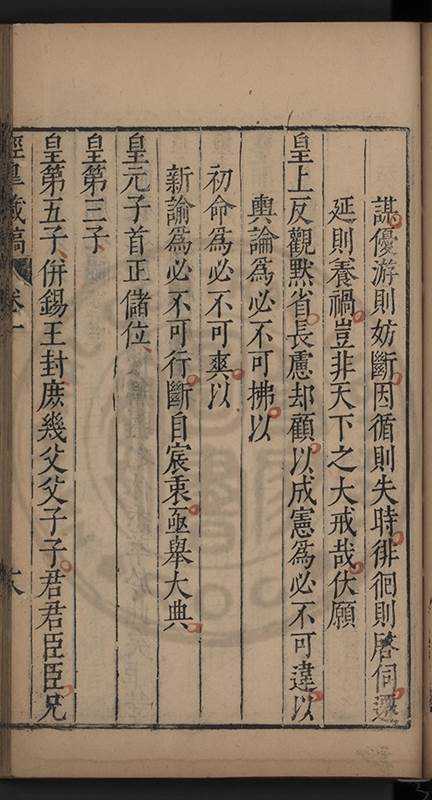 謀優游則妨斷因循則失時徘徊則啓伺遷
延則養禍豈非天下之大戒哉伏願
皇上反觀默省長慮却顧以成憲為必不可違以
輿論為必不可拂以
初命為必不可爽以
新諭為必不可行斷自宸秉亟舉大典
皇元子首正儲位
皇第三子
皇第五子併錫王封庶幾父父子子君君臣臣兄
經皐藏稿 卷一 六